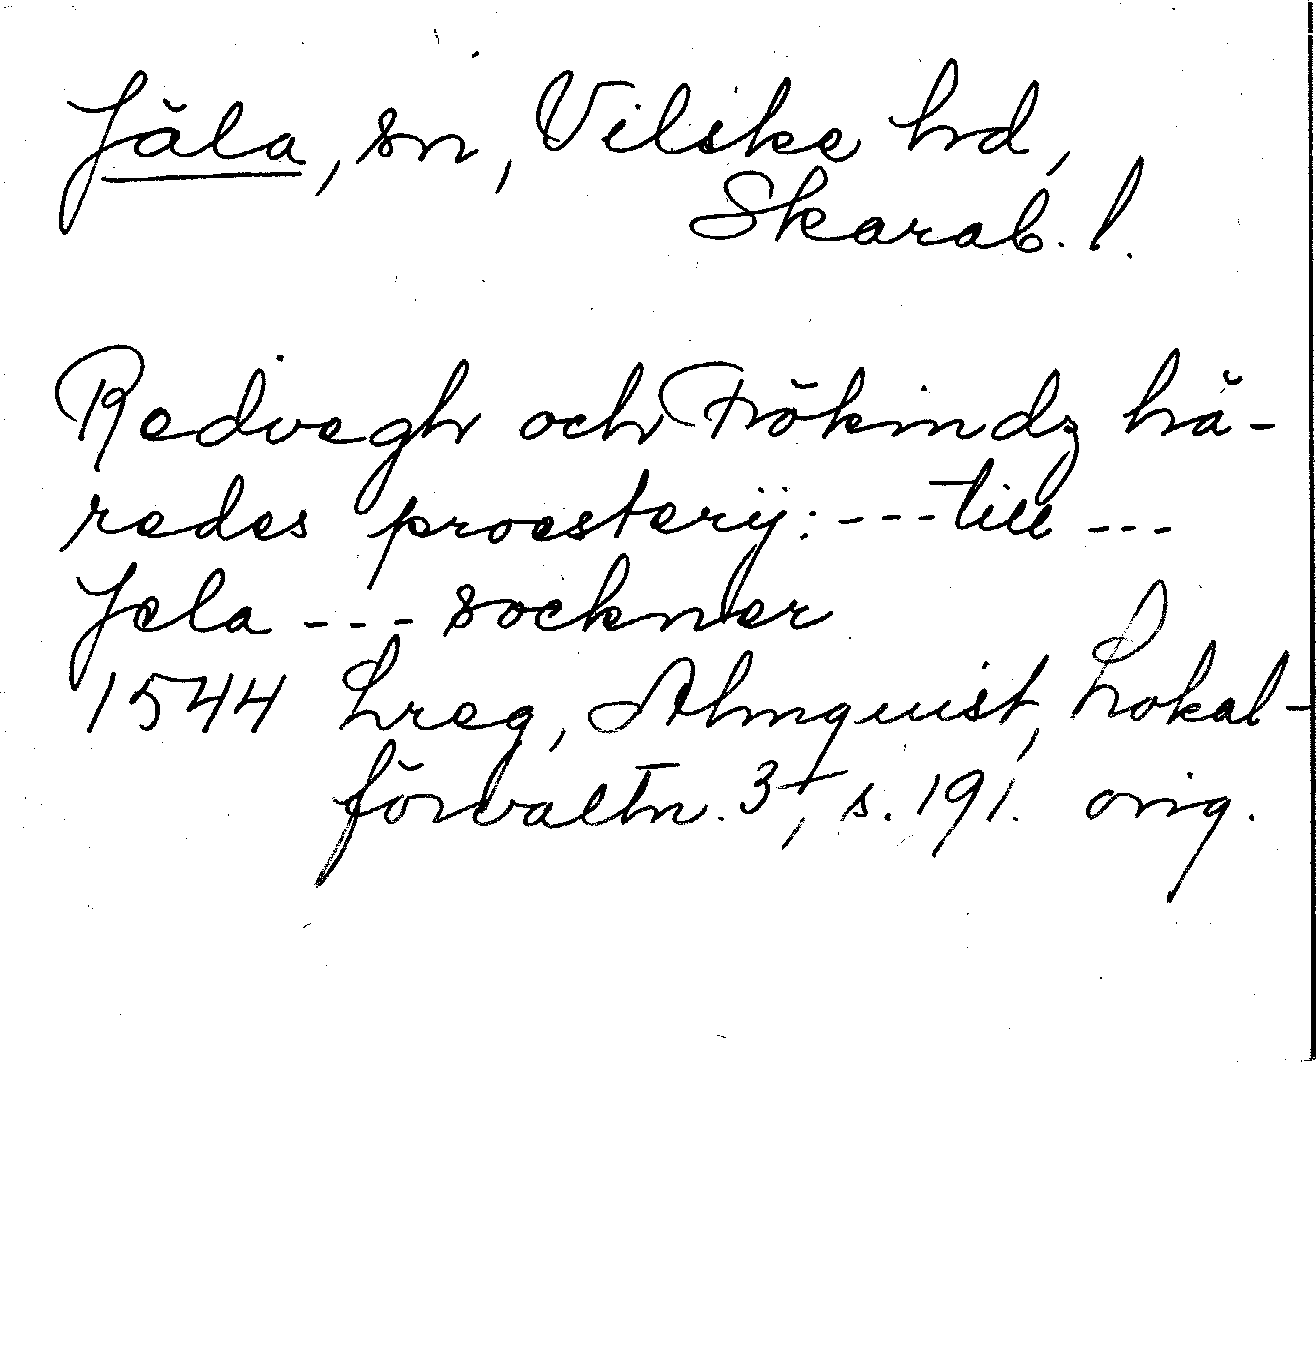 Jäla, sn, Vilske hrd,
Skarab. l.
Redvegh och Frökindz hä-
redes proesterij: --- till ---
Jela --- sockner
1544 Lreg, Almquist, Lokal-
förvaltn. 3, s. 191. orig.